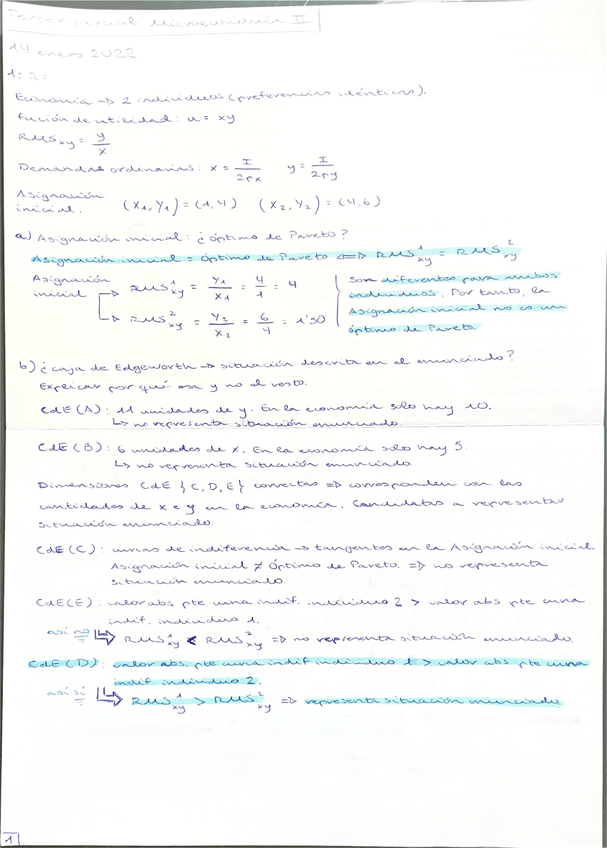 Tercer parcial Microeconomía II
14 enero 2022
1: 2:
Economía → 2 individuos (preferencias idénticas).
Función de utilidad: u = xy
RMSxy = y/x
Demandas ordinarias: x = I/2px y = I/2py
Asignación inicial. (X1, Y1) = (1,4) (X2, Y2) = (4,6)
a) Asignación inicial: ¿óptimo de Pareto?
Asignación inicial = Óptimo de Pareto ⟺ RMS¹xy = RMS²xy
Asignación inicial → RMS¹xy = Y1/X1 = 4/1 = 4
↳ RMS²xy = Y2/X2 = 6/4 = 1'50
Son diferentes para ambos
individuos. Por tanto, la
Asignación inicial no es un
óptimo de Pareto.
b) ¿caja de Edgeworth → situación descrita en el enunciado?
Explicar por qué esa y no el resto.
CdE (A): 11 unidades de y. En la economía solo hay 10.
↳ no representa situación enunciado.
CdE (B): 6 unidades de x. En la economía solo hay 5.
↳ no representa situación enunciado.
Dimensiones CdE {C, D, E} correctas ⇒ corresponden con las
cantidades de x e y en la economía. Candidatas a representar
situación enunciado.
CdE (C): curvas de indiferencia → tangentes en la Asignación inicial.
Asignación inicial ≠ Óptimo de Pareto. ⇒ no representa
situación enunciado.
CdE (E): valor abs pte curva indif. individuo 2 > valor abs pte curva
indif. individuo 1.
así no ↳ RMS¹xy < RMS²xy ⇒ no representa situación enunciado.
CdE (D): valor abs. pte curva indif individuo 1 > valor abs pte curva
indif individuo 2.
así sí ↳ RMS¹xy > RMS²xy ⇒ representa situación enunciado.
1